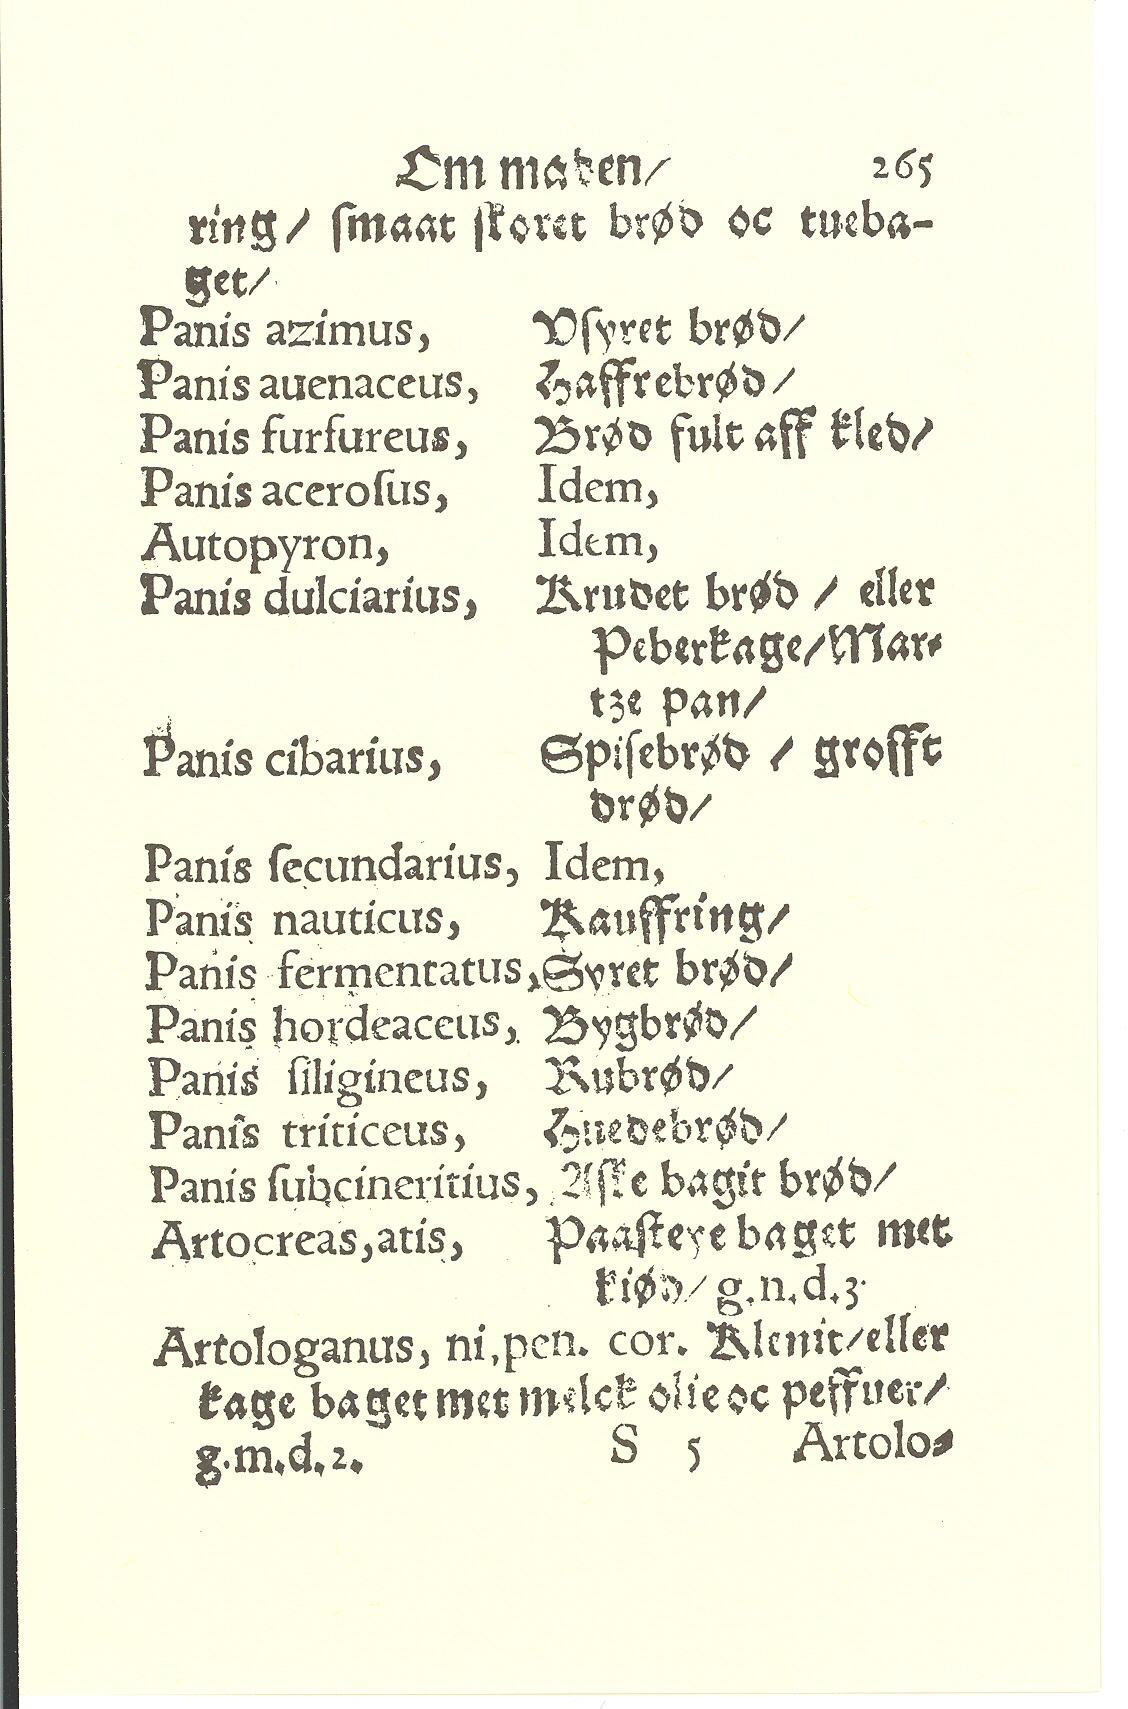 Om maden/ 265
ring/ ſmaat ſkoret brød oc tueba-
get/
Panis azimus, Vſyret brød/
Panis auenaceus, Haffrebrød/
Panis furfureus, Brød fult aff kled/
Panis aceroſus, Idem,
Autopyron, Idem,
Panis dulciarius, Krudet brød / eller
Peberkage/Mar⸗
tze pan/
Panis cibarius, Spiſebrød / grofft
drød/
Panis ſecundarius, Idem,
Panis nauticus, Kauffring/
Panis fermentatus, Syret brød/
Panis hordeaceus, Bygbrød/
Panis ſiligineus, Rubrød/
Panis triticeus, Huedebrød/
Panis ſubcineritius, Aſke bagit brød/
Artocreas,atis, Paaſteye baget met
kiød/ g.n.d.3.
Artologanus, ni,pen. cor. Klenit/eller
kage baget met melck olie oc peffuer/
g.m.d.2. S 5 Artolo⸗